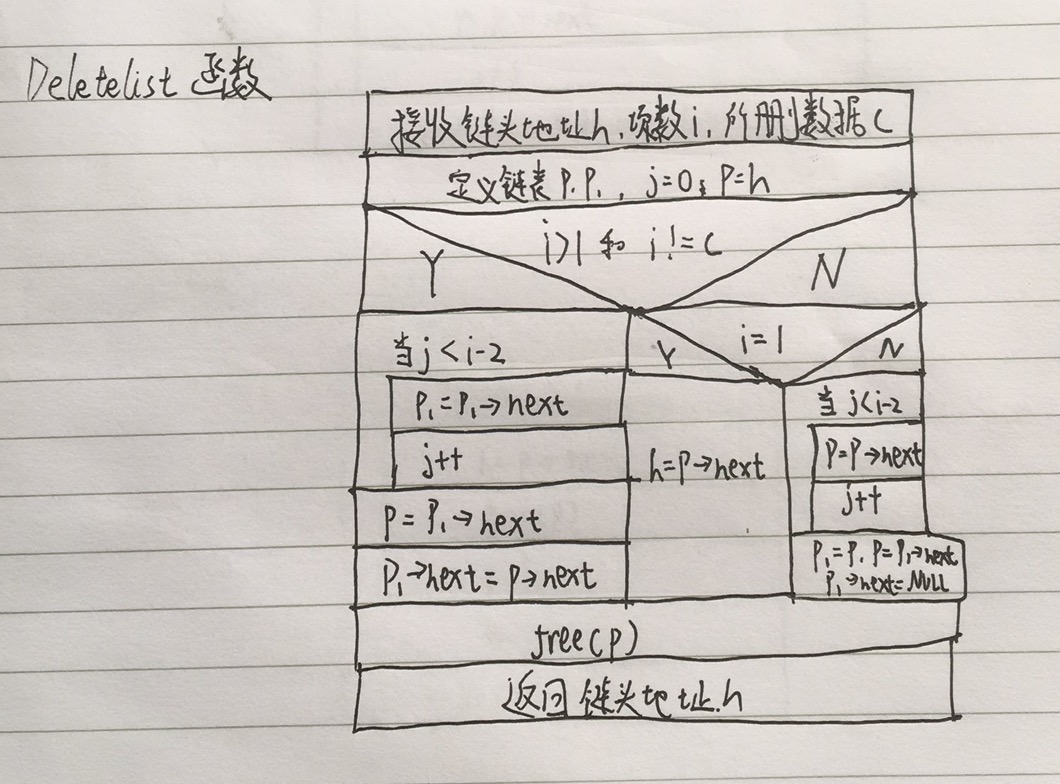 Deletelist 函数
接收链头地址h,项数i,所删数据c
定义链表 P,P₁, j=0; P=h
i>1 和 i!=c
Y
N
当 j<i-2
P₁=P₁→next
j++
P=P₁→next
P₁→next=P→next
i=1
Y
N
h=P→next
当 j<i-2
P=P→next
j++
P₁=P. P=P₁→next
P₁→next=NULL
free(P)
返回链头地址h